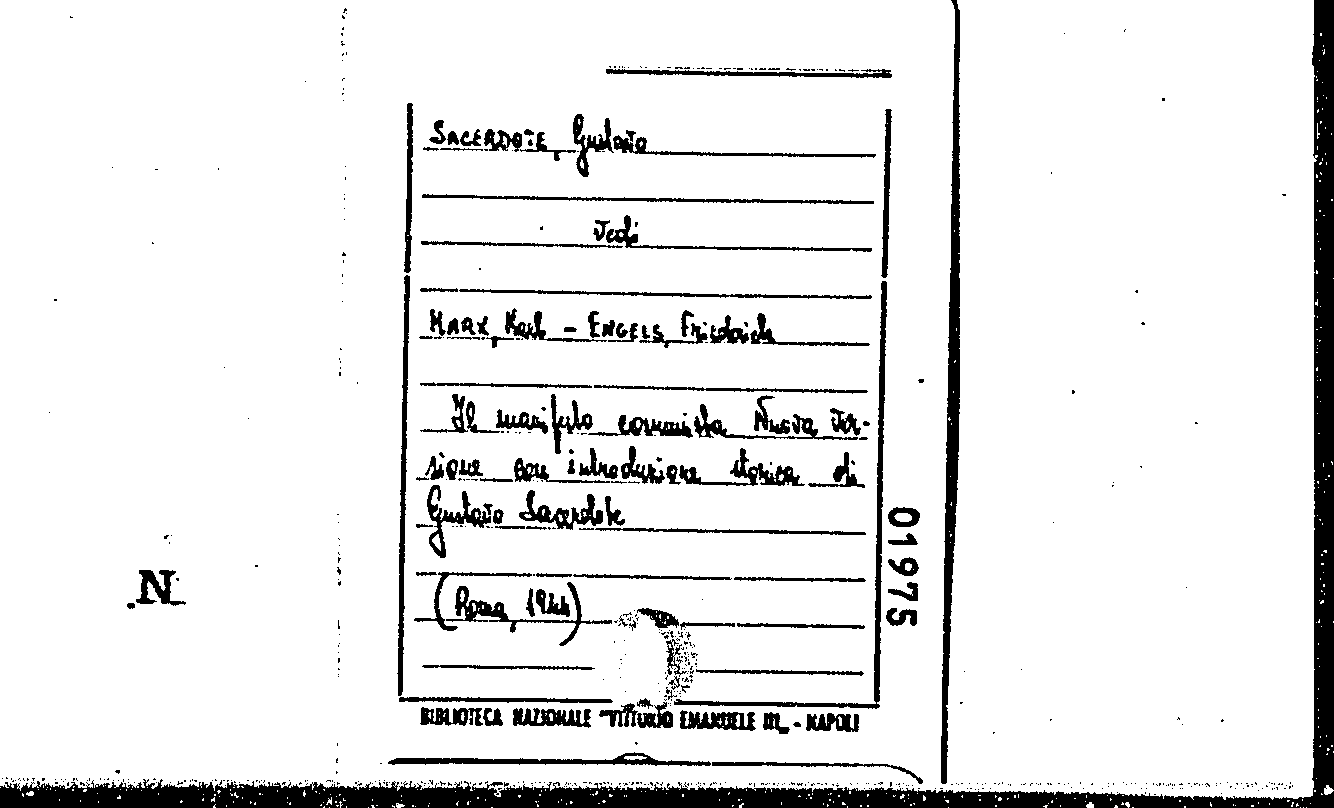 SACERDOTE, Gustavo
Vedi
MARX, Karl - ENGELS, Friedrich
Il manifesto comunista Nuova ver-
sione con introduzione storica di
Gustavo Sacerdote
(Roma, 1944)
BIBLIOTECA NAZIONALE "VITTORIO EMANUELE III„ - NAPOLI
01975
N